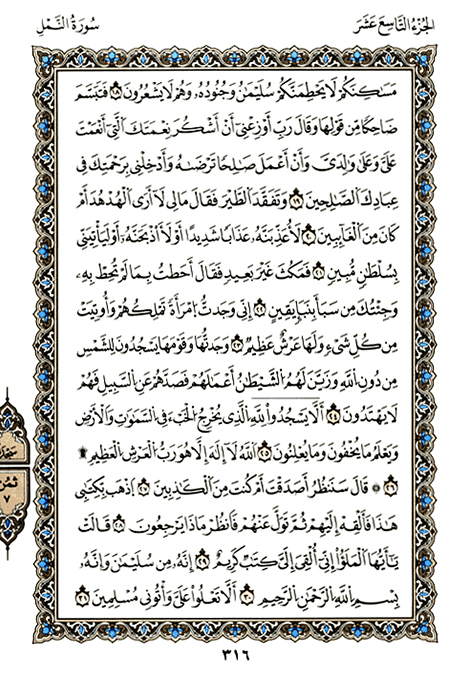 الجُزءُ التَّاسِعَ عَشَرَ
سُورَةُ النَّمْلِ
مَسَٰكِنَكُمْ لَا يَحْطِمَنَّكُمْ سُلَيْمَٰنُ وَجُنُودُهُۥ وَهُمْ لَا يَشْعُرُونَ ١٨ فَتَبَسَّمَ
ضَاحِكًا مِّن قَوْلِهَا وَقَالَ رَبِّ أَوْزِعْنِيَ أَنْ أَشْكُرَ نِعْمَتَكَ ٱلَّتِيٓ أَنْعَمْتَ
عَلَيَّ وَعَلَىٰ وَٰلِدَيَّ وَأَنْ أَعْمَلَ صَٰلِحًا تَرْضَىٰهُ وَأَدْخِلْنِي بِرَحْمَتِكَ فِي
عِبَادِكَ ٱلصَّٰلِحِينَ ١٩ وَتَفَقَّدَ ٱلطَّيْرَ فَقَالَ مَالِي لَآ أَرَى ٱلْهُدْهُدَ أَمْ
كَانَ مِنَ ٱلْغَآئِبِينَ ٢٠ لَأُعَذِّبَنَّهُۥ عَذَابًا شَدِيدًا أَوْ لَأَاْذْبَحَنَّهُۥٓ أَوْ لَيَأْتِيَنِّي
بِسُلْطَٰنٍ مُّبِينٍ ٢١ فَمَكَثَ غَيْرَ بَعِيدٍ فَقَالَ أَحَطتُ بِمَا لَمْ تُحِطْ بِهِۦ
وَجِئْتُكَ مِن سَبَإٍ بِنَبَإٍ يَقِينٍ ٢٢ إِنِّي وَجَدتُّ ٱمْرَأَةً تَمْلِكُهُمْ وَأُوتِيَتْ
مِن كُلِّ شَيْءٍ وَلَهَا عَرْشٌ عَظِيمٌ ٢٣ وَجَدتُّهَا وَقَوْمَهَا يَسْجُدُونَ لِلشَّمْسِ
مِن دُونِ ٱللَّهِ وَزَيَّنَ لَهُمُ ٱلشَّيْطَٰنُ أَعْمَٰلَهُمْ فَصَدَّهُمْ عَنِ ٱلسَّبِيلِ فَهُمْ
لَا يَهْتَدُونَ ٢٤ أَلَّا يَسْجُدُواْ لِلَّهِ ٱلَّذِي يُخْرِجُ ٱلْخَبْءَ فِي ٱلسَّمَٰوَٰتِ وَٱلْأَرْضِ
وَيَعْلَمُ مَا يُخْفُونَ وَمَا يُعْلِنُونَ ٢٥ ٱللَّهُ لَآ إِلَٰهَ إِلَّا هُوَ رَبُّ ٱلْعَرْشِ ٱلْعَظِيمِ ۩
٢٦ قَالَ سَنَنظُرُ أَصَدَقْتَ أَمْ كُنتَ مِنَ ٱلْكَٰذِبِينَ ٢٧ ٱذْهَب بِّكِتَٰبِي
هَٰذَا فَأَلْقِهِ إِلَيْهِمْ ثُمَّ تَوَلَّ عَنْهُمْ فَٱنظُرْ مَاذَا يَرْجِعُونَ ٢٨ قَالَتْ
يَٰٓأَيُّهَا ٱلْمَلَؤُاْ إِنِّي أُلْقِيَ إِلَيَّ كِتَٰبٌ كَرِيمٌ ٢٩ إِنَّهُۥ مِن سُلَيْمَٰنَ وَإِنَّهُۥ
بِسْمِ ٱللَّهِ ٱلرَّحْمَٰنِ ٱلرَّحِيمِ ٣٠ أَلَّا تَعْلُواْ عَلَيَّ وَأْتُونِي مُسْلِمِينَ ٣١
سجدة
ثمن
٧
٣١٦